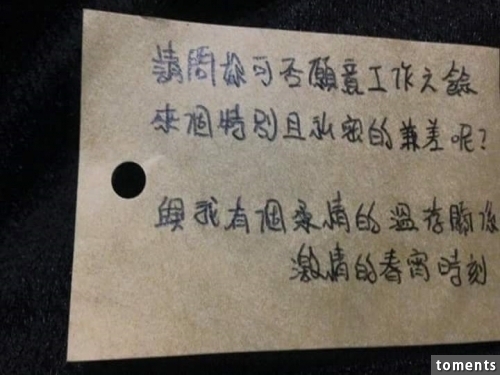 請問妳可否願意工作之餘
來個特別且私密的兼差呢?
與我有個柔情的溫存勝後
激情的春宵時刻
toments